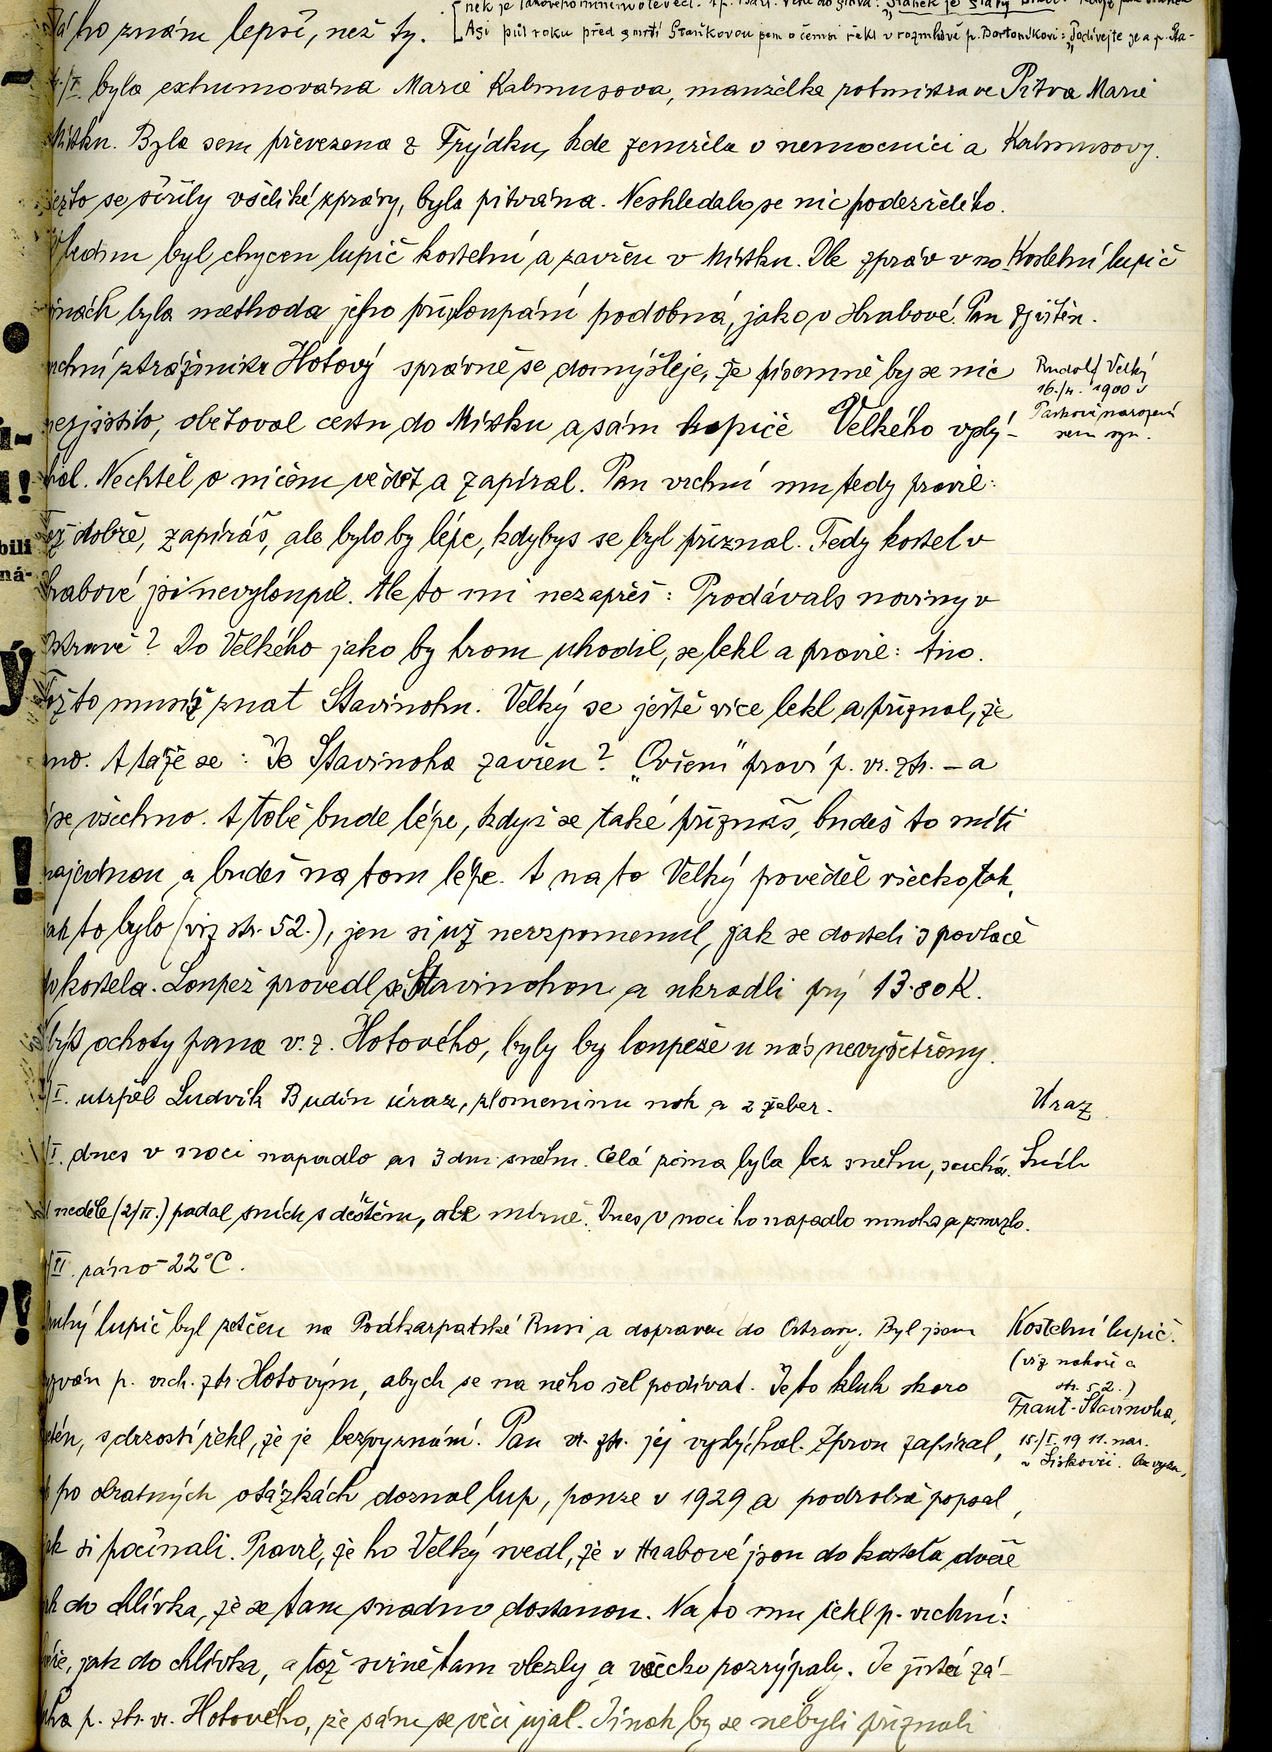 já ho znám lepší, než ty.
Asi půl roku před smrtí Staňkovou jsem o čemsi řekl v rozmluvě p. Bartoníkovi: „Podívejte se a p. Sta-
byla exhumována Marie Kalmusova, manželka rotmistra ve Pitva Marie
Místku. Byla sem převezena z Frýdku, kde zemřela v nemocnici a Kalmusovy.
ježto se šířily všeliké zprávy, byla pitvána. Neshledalo se nic podezřelého.
byl chycen lupič kostelní a zavřen v Místku. Dle zpráv v no- Kostelní lupič
vinách byla methoda jeho při loupání podobná, jako v Hrabové. Pan zjištěn.
vrchní strážník Hotový správně se domýšleje, že písemně by se nic
nezjistilo, obětoval cestu do Místku a sám lupiče Velkého vyslý-
Rudolf Velký
16./4. 1900 v
Paskově narozený
sem syn.
chal. Nechtěl o ničem vědět a zapíral. Pan vrchní mu tedy pravil:
Tož dobře, zapíráš, ale bylo by lépe, kdybys se byl přiznal. Tedy kostel v
Hrabové jsi nevyloupil. Ale to mi nezapřeš: Prodávals noviny v
Ostravě? Do Velkého jako by hrom uhodil, se lekl a pravil: Ano.
Tož to musíš znat Stavinohu. Velký se ještě více lekl a přiznal, že
ano. A táže se: Je Stavinoha zavřen? „Ovšem" praví p. vr. str. – a
se všechno. A tobě bude lépe, když se také přiznáš, budeš to míti
najednou a budeš na tom lépe. A na to Velký pověděl všecko tak,
jak to bylo (viz str. 52.), jen si už nevzpomenul, jak se dostali s pavlače
do kostela. Loupež provedl se Stavinohou a ukradli prý 13·80 K.
Nebýt ochoty pana v. z. Hotového, byly by loupeže u nás nevyšetřeny.
/I. utrpěl Ludvík Budín úraz, zlomeninu noh a 2 žeber. Úraz
/I. dnes v noci napadlo as 3 dm sněhu. Celá zima byla bez sněhu, suchá. Sníh
neděle (2/II.) padal sníh s deštěm, ale mírně. Dnes v noci ho napadlo mnoho a zmrzlo.
/II. ráno -22°C.
Druhý lupič byl zatčen na Podkarpatské Rusi a dopraven do Ostravy. Byl jsem Kostelní lupič.
zván p. vrch. str. Hotovým, abych se na něho šel podívat. Je to kluk skoro
(viz nahoře a
str. 52.)
Frant. Stavinoha,
15/I. 1911 nar.
v Liskovci.
s drzostí řekl, že je bez vyznání. Pan vr. str. jej vyslýchal. Zprvu zapíral,
po obratných otázkách doznal lup, pouze v 1929 a podrobně popsal,
jak si počínali. Pravil, že ho Velký svedl, že v Hrabové jsou do kostela dveře
jak do chlívka, že se tam snadno dostanou. Na to mu řekl p. vrchní:
dveře, jak do chlívka, a tož svině tam vlezly a všecko pozrýpaly. Je jistá zá-
sluha p. str. vr. Hotového, že sám se věci ujal. Jinak by se nebyli přiznali